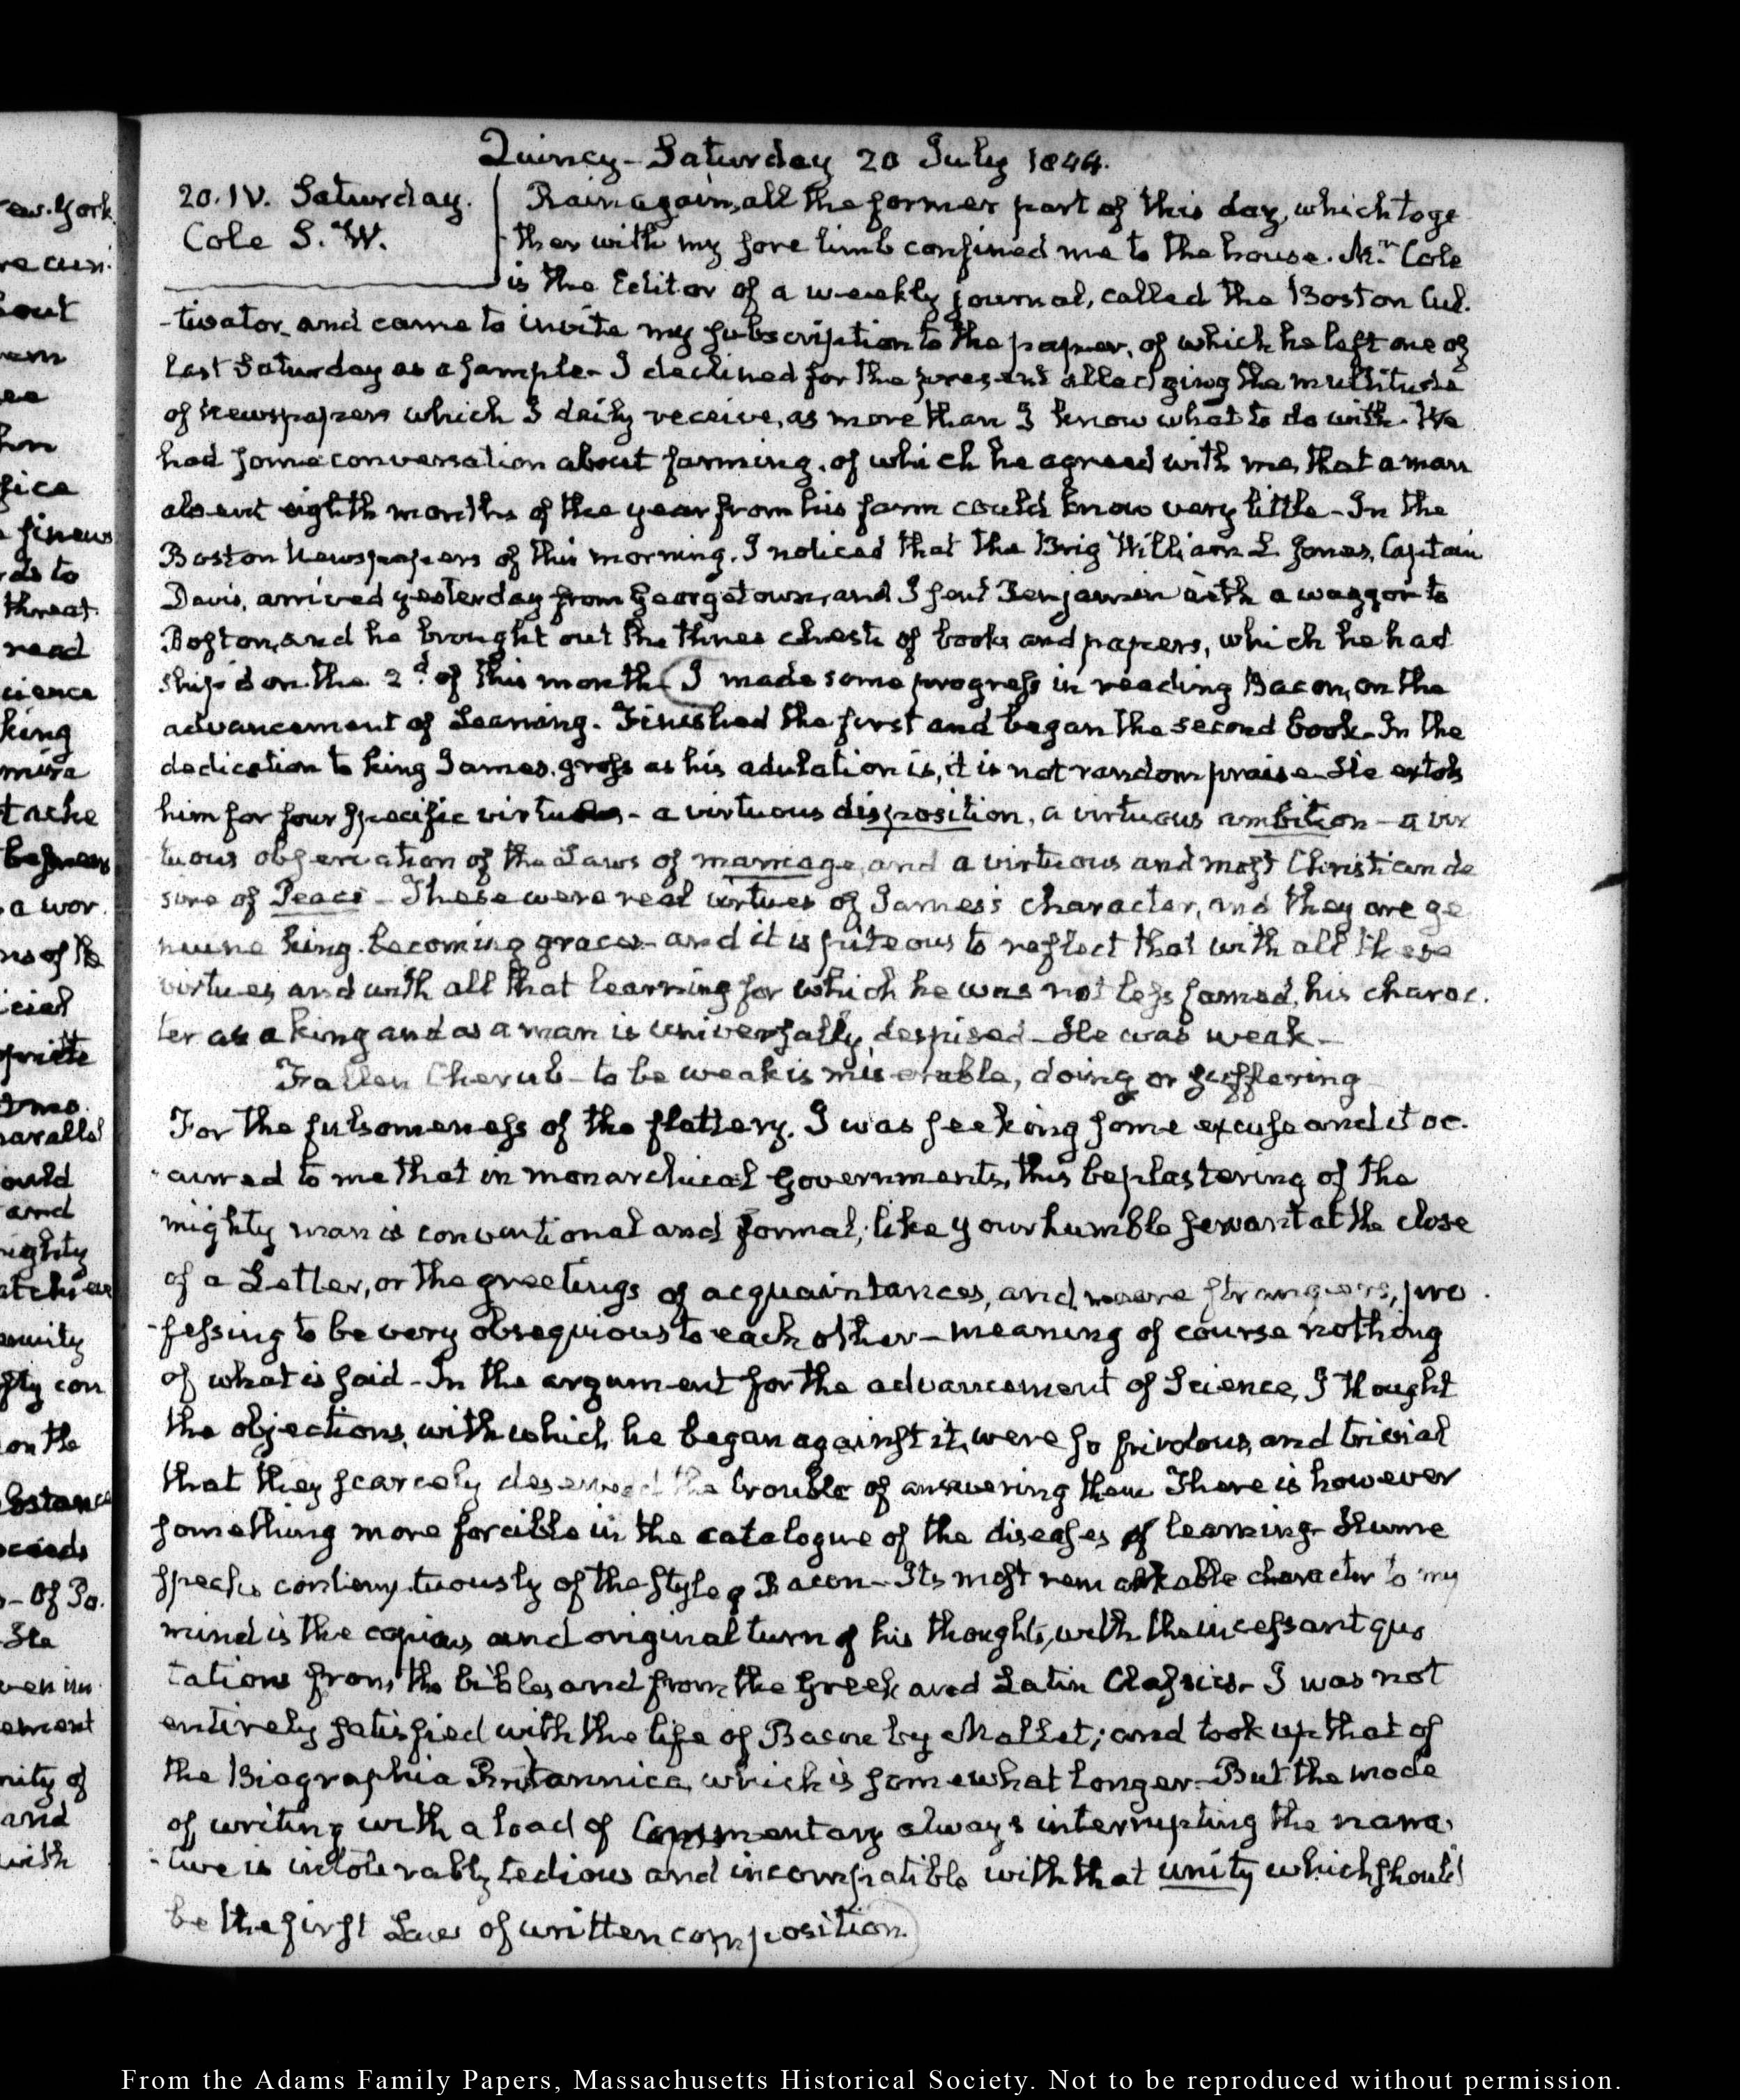 Quincy - Saturday 20 July 1844.
20. IV. Saturday.
Cole S. W.
Rain again, all the former part of this day, which toge
ther with my sore limb confined me to the house. Mr. Cole
is the Editor of a weekly journal, called the Boston Cul.
-tivator, and came to invite my subscription to the paper, of which he left one of
last Saturday as a sample - I declined for the present alledging the multitude
of Newspapers which I daily receive, as more than I know what to do with. We
had some conversation about farming, of which he agreed with me, that a man
absent eighth months of the year from his farm could know very little - In the
Boston Newspapers of this morning, I noticed that the Brig William L. Jones, Captain
Davis, arrived yesterday from Georgetown, and I sent Benjamin with a waggon to
Boston, and he brought out the three chests of books and papers, which he had
ship'd on the 2d. of this month (I made some progress in reading Bacon, on the
advancement of Learning. Finished the first and began the second book - In the
dedication to king James, gross as his adulation is, it is not random praise - He extols
him for four specific virtues - a virtuous disposition, a virtuous ambition - a vir
tuous observation of the Laws of marriage, and a virtuous and most Christian de
sire of Peace - These were real virtues of James's character, and they are ge
nuine king-becoming graces - and it is piteous to reflect that with all these
virtues and with all that learning for which he was not less famed, his charac.
ter as a king and as a man is universally despised - He was weak -
Fallen Cherub - to be weak is miserable, doing or suffering
For the fulsomeness of the flattery. I was seeking some excuse and it oc.
-curred to me that in monarchical Governments, this beplastering of the
mighty man is conventional and formal; like your humble servant at the close
of a Letter, or the greetings of acquaintances, and meere strangers, pro
-fessing to be very obsequious to each other - meaning of course nothing
of what is said - In the argument for the advancement of Science, I thought
the objections, with which he began against it, were so frivolous, and trivial
that they scarcely deserved the trouble of answering them There is however
something more forcible in the catalogue of the diseases of learning - Hume
speaks contemptuously of the style of Bacon - Its most remarkable character to my
mind is the copious and original turn of his thoughts, with the incessant quo
tations from the bible, and from the Greek and Latin Classics - I was not
entirely satisfied with the life of Bacon by Mallet; and took up that of
the Biographia Britannica, which is somewhat longer - But the mode
of writing with a load of Commentary always interrupting the narra.
-tive is intolerably tedious and incompatible with that unity which should
be the first Law of written composition.)
ew-York.
out
fice
ds to
threat.
read
cience
king
tache
a wor.
ns of the
ould
and
on the
- Of Po.
ven in.
ement
nity of
and
with
From the Adams Family Papers, Massachusetts Historical Society. Not to be reproduced without permission.